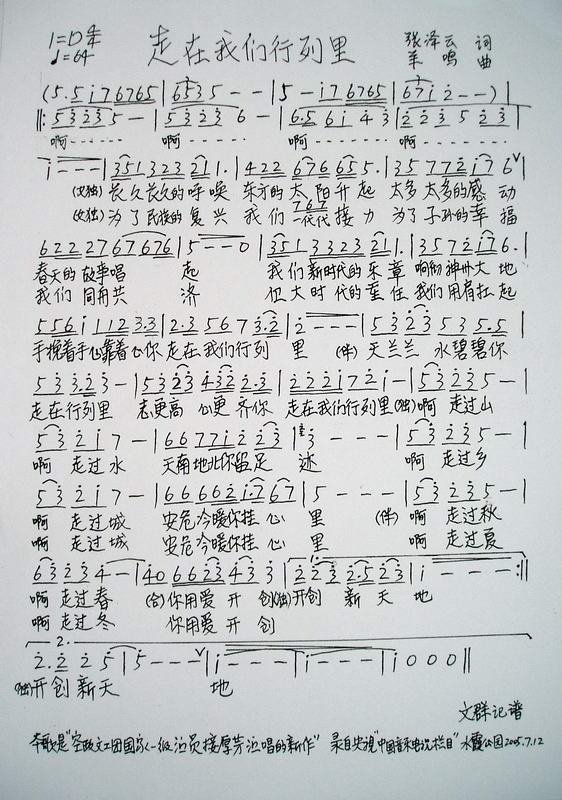 1=D 4/4
♩=64
走在我们行列里
张泽云 词
羊鸣 曲
(5·5 i7 6765 | 6535 - - | 5 - i7 6765 | 67i 2 - -) |
‖: 5323 5 - | 5323 6 - | 6·5 6i 4 3 | 2235 23 |
啊…… 啊…… 啊…… 啊……
i - - - | 351 323 21 1· | 422 676 65 5· | 35 772 i7 6 |
(女独) 长久长久的呼唤 东方的太阳升起 太多太多的感动
767
(女独) 为了民族的复兴 我们一代代接力 为了子孙的幸福
622 27 67676 | 5 - - 0 | 351 3323 21 1· | 357 2i7 6· |
春天的故事唱起 我们新时代的乐章 响彻神州大地
我们同舟共济 但大时代的重任 我们用肩扛起
556 i 112 3·3 | 2·3 56 7 3·2 | 2 - - - | 53 23 53 5·5 |
手挽着手心靠着心你走在我们行列里 (伴) 天兰兰 水碧碧你
53 3·2 3 - | 53 23 432 2·3 | 222i 72 i - | 53 23 5 - |
走在行列里 志更高 心更齐你 走在我们行列里 (独)啊 走过山
53 2i 7 - | 66 77i 2 23 | 3 - - - | 53 23 5 - |
啊 走过水 天南地北你留足迹 啊 走过乡
53 2i 7 - | 66 662 i·7 67 | 5 - - - | 53 23 5 - |
啊 走过城 安危冷暖你挂心里 (伴) 啊 走过秋
啊 走过城 安危冷暖你挂心里 啊 走过夏
63 23 4 - | 40 6623 43 3 | 2 23 2·5 23 | i - - - :‖
啊 走过春 (合) 你用爱开创 (独)开创新天地
啊 走过冬 你用爱开创
2.
2·2 25 | 5 - - - | i - - - | i - - - | i 0 0 0 ‖
(独)开创新天 地
文群记谱
本歌是"空政文工团国家一级演员 演唱的新作" 录自央视"中国音乐电视栏目" 水霞公园2005.7.12